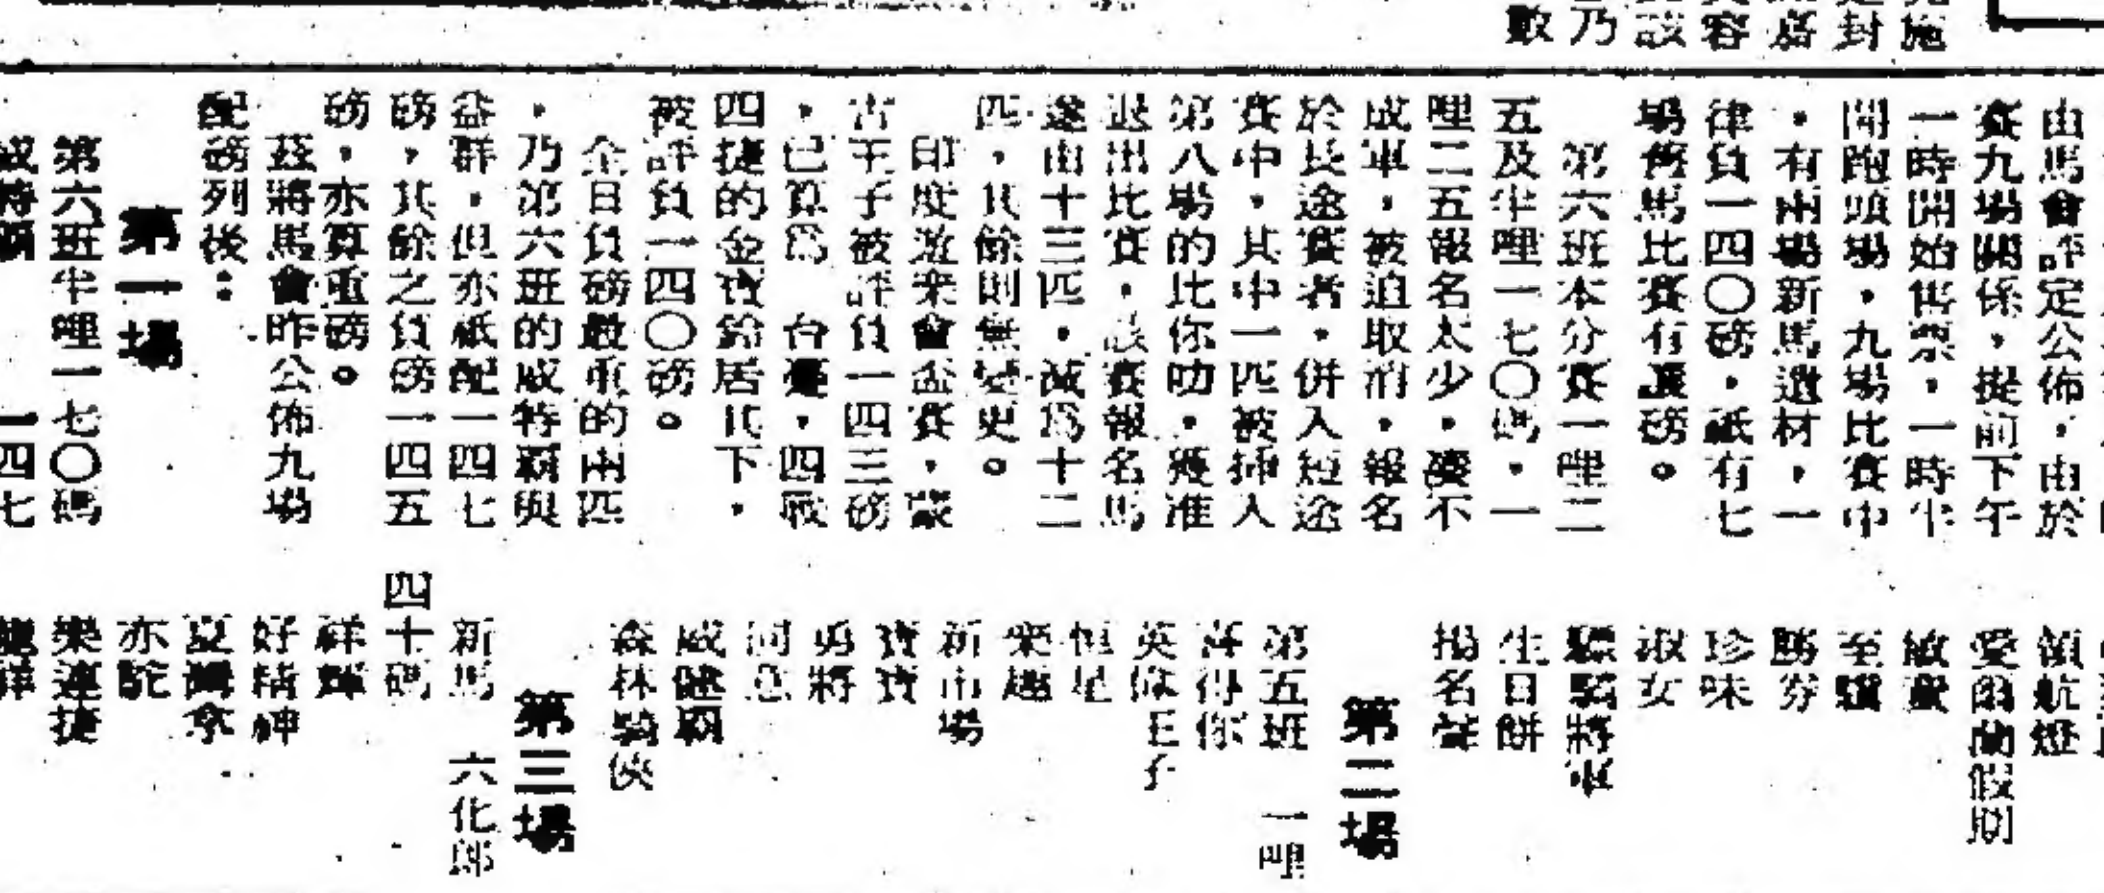 施
封
嘉
容
該
乃
數
由馬會評定公佈，由於
賽九場關係，提前下午
一時開始售票，一時半
開跑頭場，九場比賽中
，有兩場新馬遺材，一
律負一四〇磅，祇有七
場舊馬比賽有讓磅。
第六班本分賽一哩二
五及半哩一七〇碼，一
哩二五報名太少，湊不
成軍，被迫取消，報名
於長途賽者，併入短途
賽中，其中一匹被揷入
第八場的比你叻，獲准
退出比賽，該賽報名馬
遂由十三匹，減爲十二
匹，其餘則無變更。
印度遊樂會盃賽，蒙
古王子被評負一四三磅
，已算爲 台臺，四戰
四捷的金寶鈴居其下，
被評負一四〇磅。
全日負磅最重的兩匹
，乃第六班的威特霸與
益群，但亦祇配一四七
磅，其餘之負磅一四五
磅，亦算重磅。
茲將馬會昨公佈九場
配磅列後：
第一場
第六班半哩一七〇碼
威特霸 一四七
領航燈
愛爾蘭假期
敏捷
至驥
勝券
珍味
淑女
驃騎將軍
生日餅
揚名聲
第二場
第五班 一哩
淨得你
英倫王子
恒星
樂趣
新市場
寶寶
勇將
同意
威健霸
森林騎俠
第三場
新馬 六化郎
四十碼
祥輝
好精神
夏灣拿
亦駝
樂連捷
龍祥